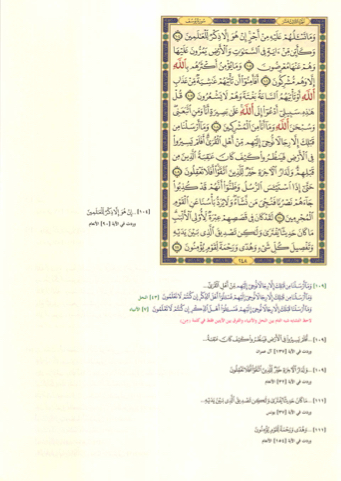 وَمَا تَسْـَٔلُهُمْ عَلَيْهِ مِنْ أَجْرٍ إِنْ هُوَ إِلَّا ذِكْرٌ لِّلْعَٰلَمِينَ ١٠٤
وَكَأَيِّن مِّنْ ءَايَةٍ فِي السَّمَٰوَٰتِ وَالْأَرْضِ يَمُرُّونَ عَلَيْهَا
وَهُمْ عَنْهَا مُعْرِضُونَ ١٠٥ وَمَا يُؤْمِنُ أَكْثَرُهُم بِاللَّهِ
إِلَّا وَهُم مُّشْرِكُونَ ١٠٦ أَفَأَمِنُوٓا۟ أَن تَأْتِيَهُمْ غَٰشِيَةٌ مِّنْ عَذَابِ
اللَّهِ أَوْ تَأْتِيَهُمُ السَّاعَةُ بَغْتَةً وَهُمْ لَا يَشْعُرُونَ ١٠٧ قُلْ
هَٰذِهِۦ سَبِيلِيٓ أَدْعُوٓا۟ إِلَى اللَّهِ عَلَىٰ بَصِيرَةٍ أَنَا۠ وَمَنِ اتَّبَعَنِي
وَسُبْحَٰنَ اللَّهِ وَمَآ أَنَا۠ مِنَ الْمُشْرِكِينَ ١٠٨ وَمَآ أَرْسَلْنَا مِن
قَبْلِكَ إِلَّا رِجَالًا نُّوحِيٓ إِلَيْهِم مِّنْ أَهْلِ الْقُرَىٰٓ أَفَلَمْ يَسِيرُوا۟
فِي الْأَرْضِ فَيَنظُرُوا۟ كَيْفَ كَانَ عَٰقِبَةُ الَّذِينَ مِن
قَبْلِهِمْ وَلَدَارُ الْءَاخِرَةِ خَيْرٌ لِّلَّذِينَ اتَّقَوْا۟ أَفَلَا تَعْقِلُونَ ١٠٩
حَتَّىٰٓ إِذَا اسْتَيْـَٔسَ الرُّسُلُ وَظَنُّوٓا۟ أَنَّهُمْ قَدْ كُذِبُوا۟
جَآءَهُمْ نَصْرُنَا فَنُجِّيَ مَن نَّشَآءُ وَلَا يُرَدُّ بَأْسُنَا عَنِ الْقَوْمِ
الْمُجْرِمِينَ ١١٠ لَقَدْ كَانَ فِي قَصَصِهِمْ عِبْرَةٌ لِّأُو۟لِي الْأَلْبَٰبِ
مَا كَانَ حَدِيثًا يُفْتَرَىٰ وَلَٰكِن تَصْدِيقَ الَّذِي بَيْنَ يَدَيْهِ
وَتَفْصِيلَ كُلِّ شَيْءٍ وَهُدًى وَرَحْمَةً لِّقَوْمٍ يُؤْمِنُونَ ١١١
٢٤٨
[١٠٤] ...إِنْ هُوَ إِلَّا ذِكْرٌ لِّلْعَٰلَمِينَ
وردت في الآية [٩٠] الأنعام
[١٠٩] وَمَآ أَرْسَلْنَا مِن قَبْلِكَ إِلَّا رِجَالًا نُّوحِيٓ إِلَيْهِم مِّنْ أَهْلِ الْقُرَىٰٓ...
وَمَآ أَرْسَلْنَا مِن قَبْلِكَ إِلَّا رِجَالًا نُّوحِيٓ إِلَيْهِمْ فَسْـَٔلُوٓا۟ أَهْلَ الذِّكْرِ إِن كُنتُمْ لَا تَعْلَمُونَ [٤٣] النحل
وَمَآ أَرْسَلْنَا قَبْلَكَ إِلَّا رِجَالًا نُّوحِيٓ إِلَيْهِمْ فَسْـَٔلُوٓا۟ أَهْلَ الذِّكْرِ إِن كُنتُمْ لَا تَعْلَمُونَ [٧] الأنبياء
[١٠٩] ...أَفَلَمْ يَسِيرُوا۟ فِي الْأَرْضِ فَيَنظُرُوا۟ كَيْفَ كَانَ عَٰقِبَةُ...
[١٠٩] ...وَلَدَارُ الْءَاخِرَةِ خَيْرٌ لِّلَّذِينَ اتَّقَوْا۟ أَفَلَا تَعْقِلُونَ
[١١١] ...مَا كَانَ حَدِيثًا يُفْتَرَىٰ وَلَٰكِن تَصْدِيقَ الَّذِي بَيْنَ يَدَيْهِ...
وردت في الآية [٣٧] يونس
[١١١] ...وَهُدًى وَرَحْمَةً لِّقَوْمٍ يُؤْمِنُونَ
وردت في الآية [١٥٤] الأنعام